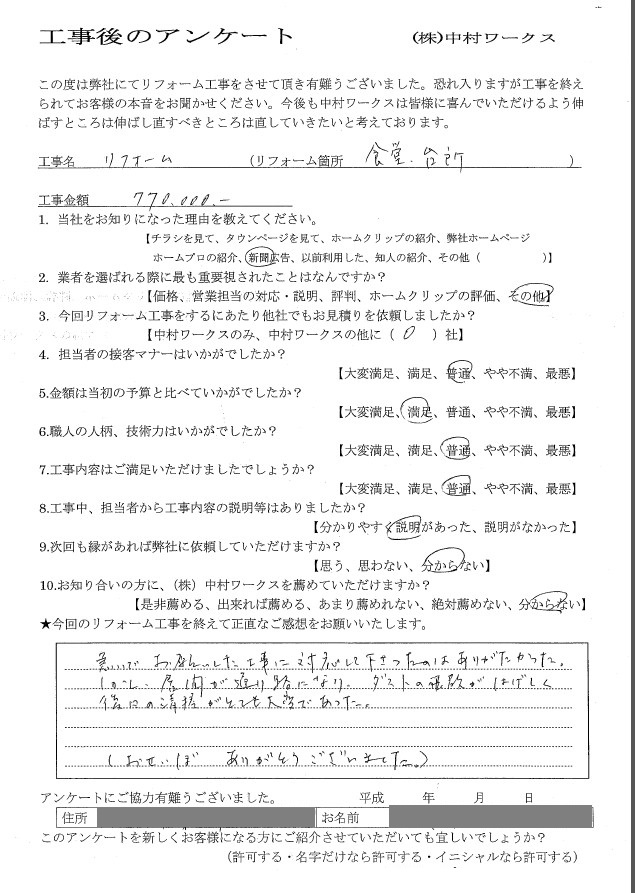 工事後のアンケート (株)中村ワークス
この度は弊社にてリフォーム工事をさせて頂き有難うございました。恐れ入りますが工事を終え
られてお客様の本音をお聞かせください。今後も中村ワークスは皆様に喜んでいただけるよう伸
ばすところは伸ばし直すべきところは直していきたいと考えております。
工事名 リフォーム (リフォーム箇所 食堂.台所 )
工事金額 770.000.-
1. 当社をお知りになった理由を教えてください。
【チラシを見て、タウンページを見て、ホームクリップの紹介、弊社ホームページ
ホームプロの紹介、新聞広告、以前利用した、知人の紹介、その他( )】
2. 業者を選ばれる際に最も重要視されたことはなんですか?
【価格、営業担当の対応・説明、評判、ホームクリップの評価、その他】
3. 今回リフォーム工事をするにあたり他社でもお見積りを依頼しましたか?
【中村ワークスのみ、中村ワークスの他に( 0 )社】
4. 担当者の接客マナーはいかがでしたか?
【大変満足、満足、普通、やや不満、最悪】
5.金額は当初の予算と比べていかがでしたか?
【大変満足、満足、普通、やや不満、最悪】
6.職人の人柄、技術力はいかがでしたか?
【大変満足、満足、普通、やや不満、最悪】
7.工事内容はご満足いただけましたでしょうか?
【大変満足、満足、普通、やや不満、最悪】
8.工事中、担当者から工事内容の説明等はありましたか?
【分かりやすく説明があった、説明がなかった】
9.次回も縁があれば弊社に依頼していただけますか?
【思う、思わない、分からない】
10.お知り合いの方に、(株)中村ワークスを薦めていただけますか?
【是非薦める、出来れば薦める、あまり薦めれない、絶対薦めない、分からない】
★今回のリフォーム工事を終えて正直なご感想をお願いいたします。
急いで お願いした工事に対応して下さったのはありがたかった。
しかし、居間が通り路になり、ダストの飛散がはげしく
後日の清掃がとても大変であった。
(おせいぼ ありがとうございました。)
アンケートにご協力有難うございました。 平成 年 月 日
住所 お名前
このアンケートを新しくお客様になる方にご紹介させていただいても宜しいでしょうか?
(許可する・名字だけなら許可する・イニシャルなら許可する)